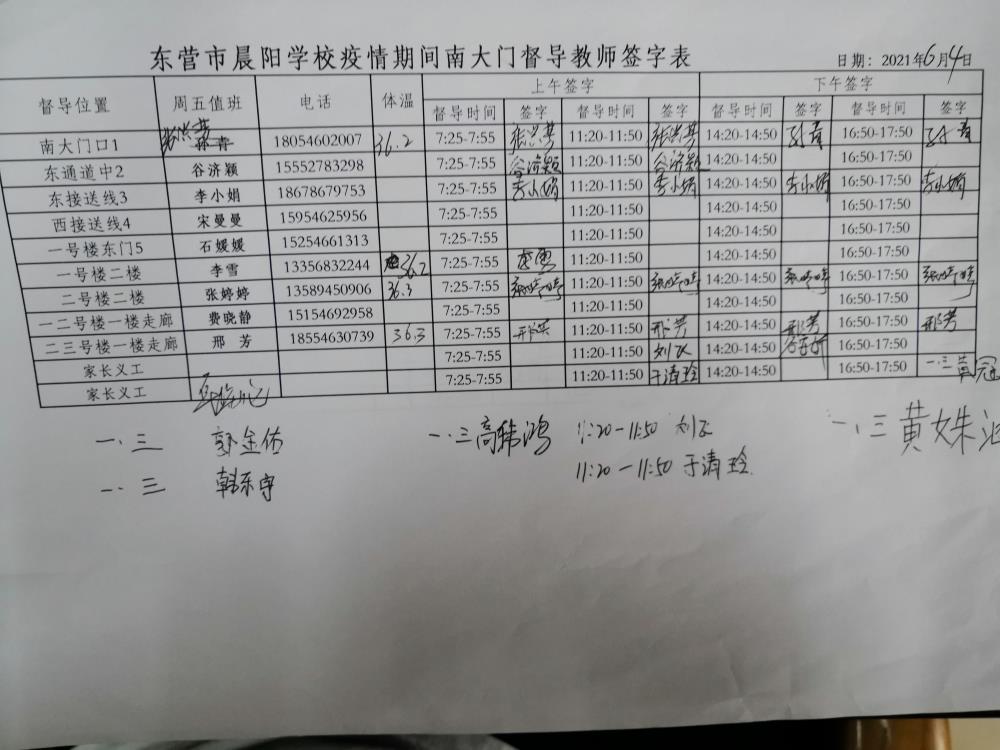 东营市晨阳学校疫情期间南大门督导教师签字表
日期：2021年6月4日
督导位置 周五值班 电话 体温 上午签字 下午签字
督导时间 签字 督导时间 签字 督导时间 签字 督导时间 签字
南大门口1 18054602007 36.2 7:25-7:55 11:20-11:50 14:20-14:50 孙青 16:50-17:50 孙青
东通道中2 谷济颖 15552783298 7:25-7:55 谷济颖 11:20-11:50 谷济颖 14:20-14:50 16:50-17:50
东接送线3 李小娟 18678679753 7:25-7:55 李小娟 11:20-11:50 李小娟 14:20-14:50 李小娟 16:50-17:50 李小娟
西接送线4 宋曼曼 15954625956 7:25-7:55 11:20-11:50 14:20-14:50 16:50-17:50
一号楼东门5 石媛媛 15254661313 7:25-7:55 11:20-11:50 14:20-14:50 16:50-17:50
一号楼二楼 李雪 13356832244 36.2 7:25-7:55 李雪 11:20-11:50 14:20-14:50 16:50-17:50
二号楼二楼 张婷婷 13589450906 36.3 7:25-7:55 张婷婷 11:20-11:50 张婷婷 14:20-14:50 张婷婷 16:50-17:50 张婷婷
一二号楼一楼走廊 费晓静 15154692958 7:25-7:55 11:20-11:50 14:20-14:50 16:50-17:50
二三号楼一楼走廊 邢芳 18554630739 36.3 7:25-7:55 邢芳 11:20-11:50 邢芳 14:20-14:50 邢芳 16:50-17:50 邢芳
家长义工 7:25-7:55 11:20-11:50 14:20-14:50 16:50-17:50
家长义工 7:25-7:55 11:20-11:50 于清玲 14:20-14:50 16:50-17:50 一.三黄冠
一.三 郭金佑 一.三高 鸿 11:20-11:50 一.三黄姝涵
一.三 韩东宇 11:20-11:50 于清玲